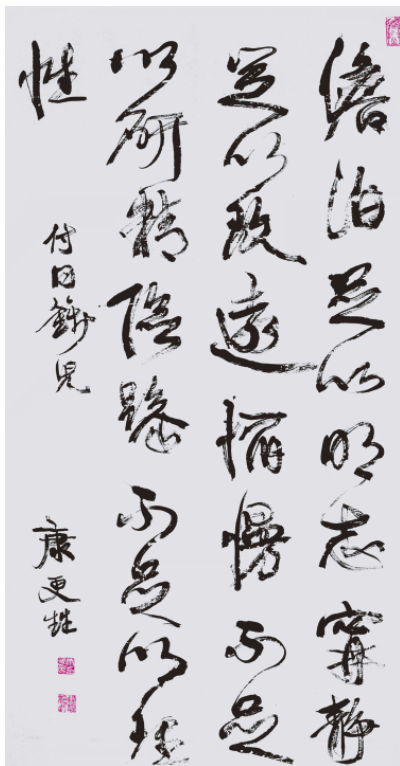 澹泊足以明志寧靜
足以致遠慆慢不足
以研精險躁不足以理
性
付同籛兒
康更甡